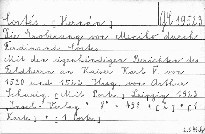 Cortés, Hernán,
Die Eroberung von Mexiko durch
Ferdinand Cortes
Mit den eigenhändigen Berichten des
Feldherrn an Kaiser Karl V. von
1520 und 1522 Hrsg. von Arthur
Schurig. (Mit Portr.) Leipzig 1923
Insel-Verlag 8°
Kart. 1 Portr.